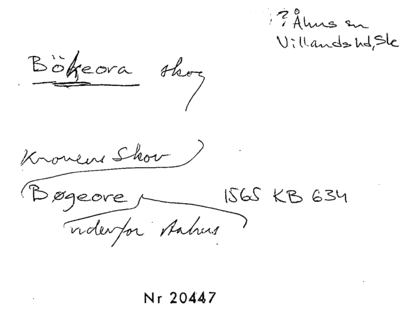 ? Åhus sn
Villands hd, Sk
Bökeora skog
Kronens Skov
Bøgeore 1565 KB 634
udenfor Aahus
Nr 20447